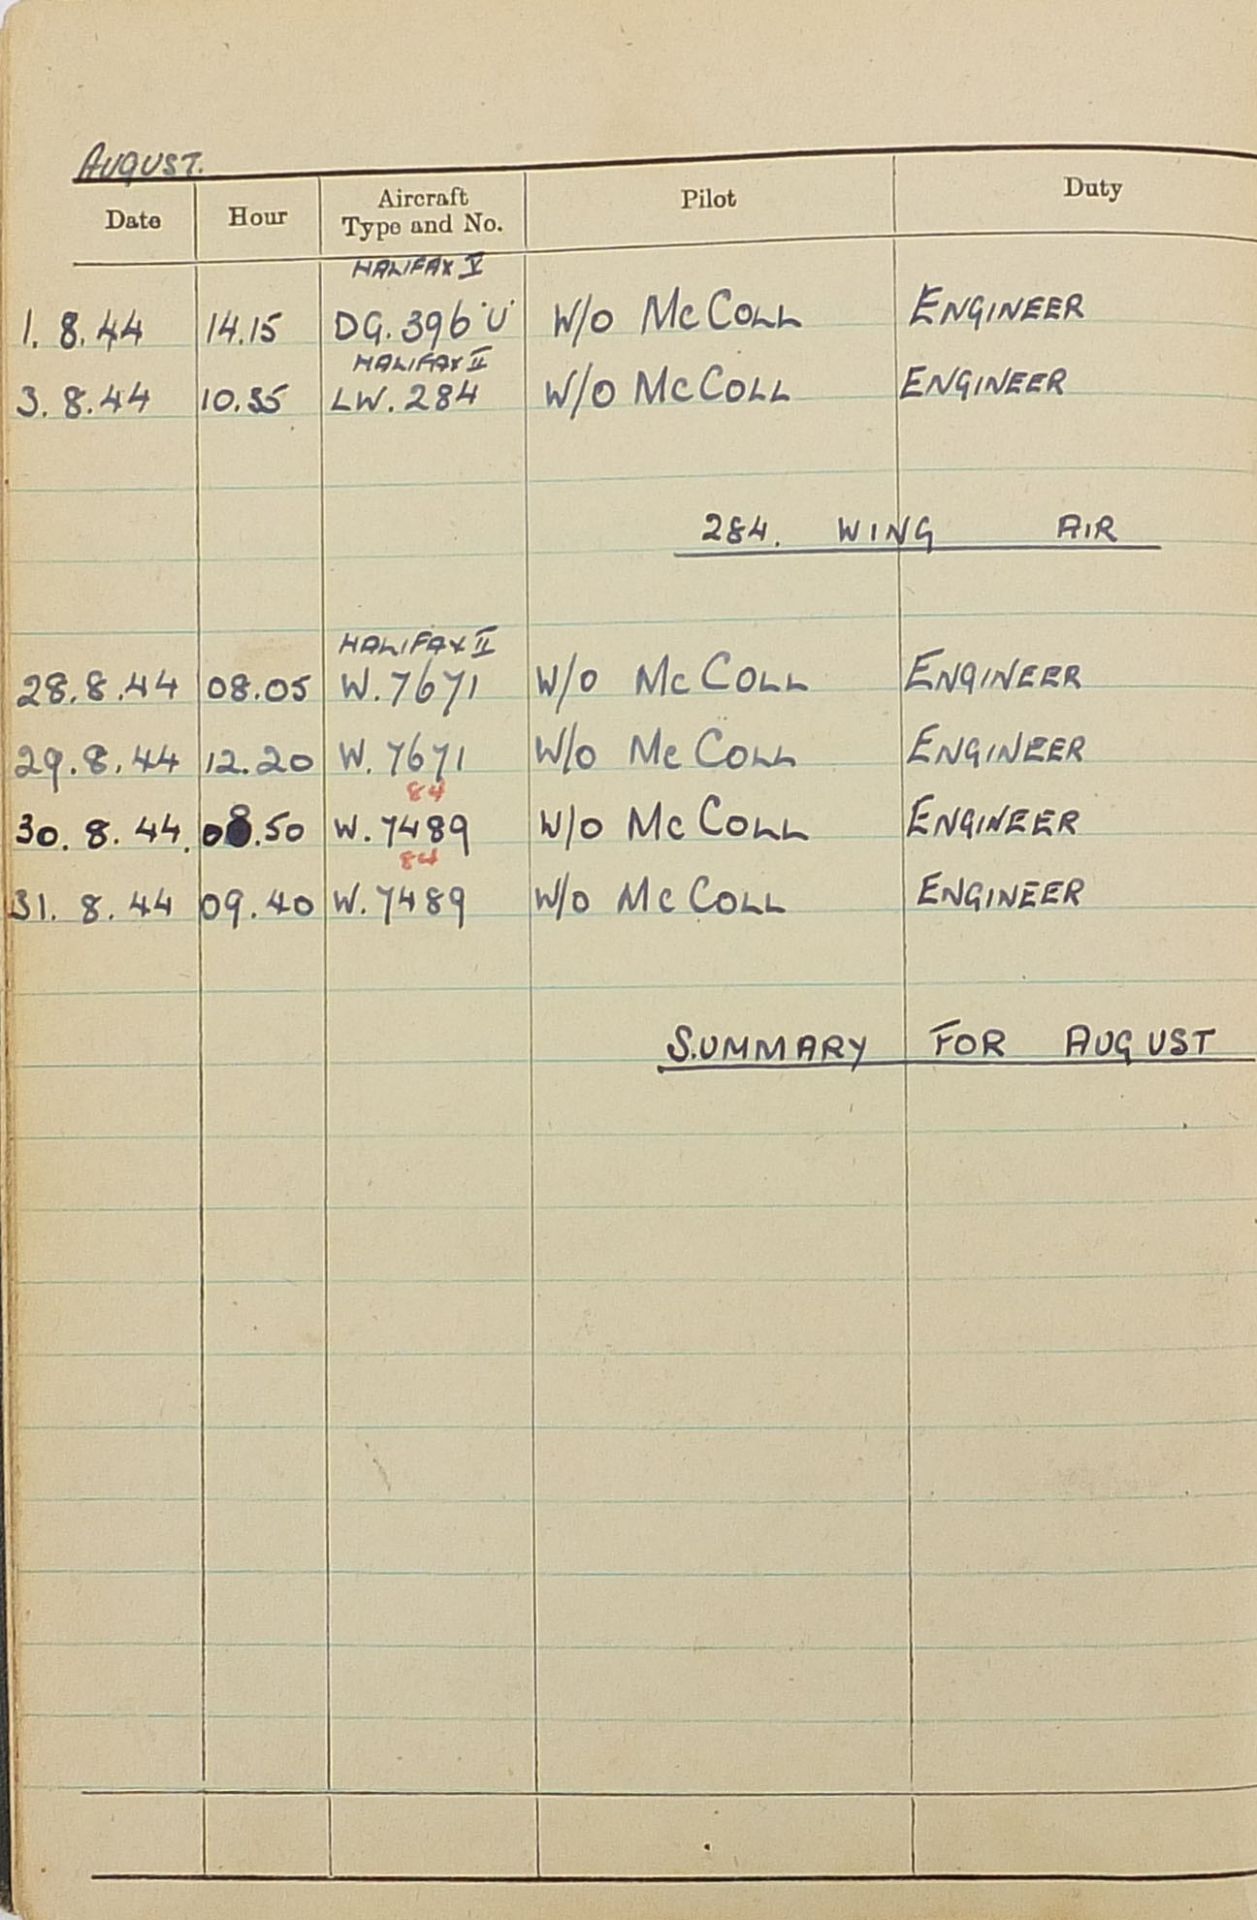 AUGUST.
Date Hour Aircraft Type and No. Pilot Duty
HALIFAX V
1. 8. 44 14.15 DG. 396 'U' W/O McCOLL ENGINEER
HALIFAX II
3. 8. 44 10.35 LW. 284 W/O McCOLL ENGINEER
284. WING AIR
HALIFAX II
28. 8. 44 08.05 W. 7671 W/O McCOLL ENGINEER
29. 8. 44 12.20 W. 7671 W/O McCOLL ENGINEER
84
30. 8. 44. 08.50 W. 7489 W/O McCOLL ENGINEER
84
31. 8. 44 09.40 W. 7489 W/O McCOLL ENGINEER
SUMMARY FOR AUGUST